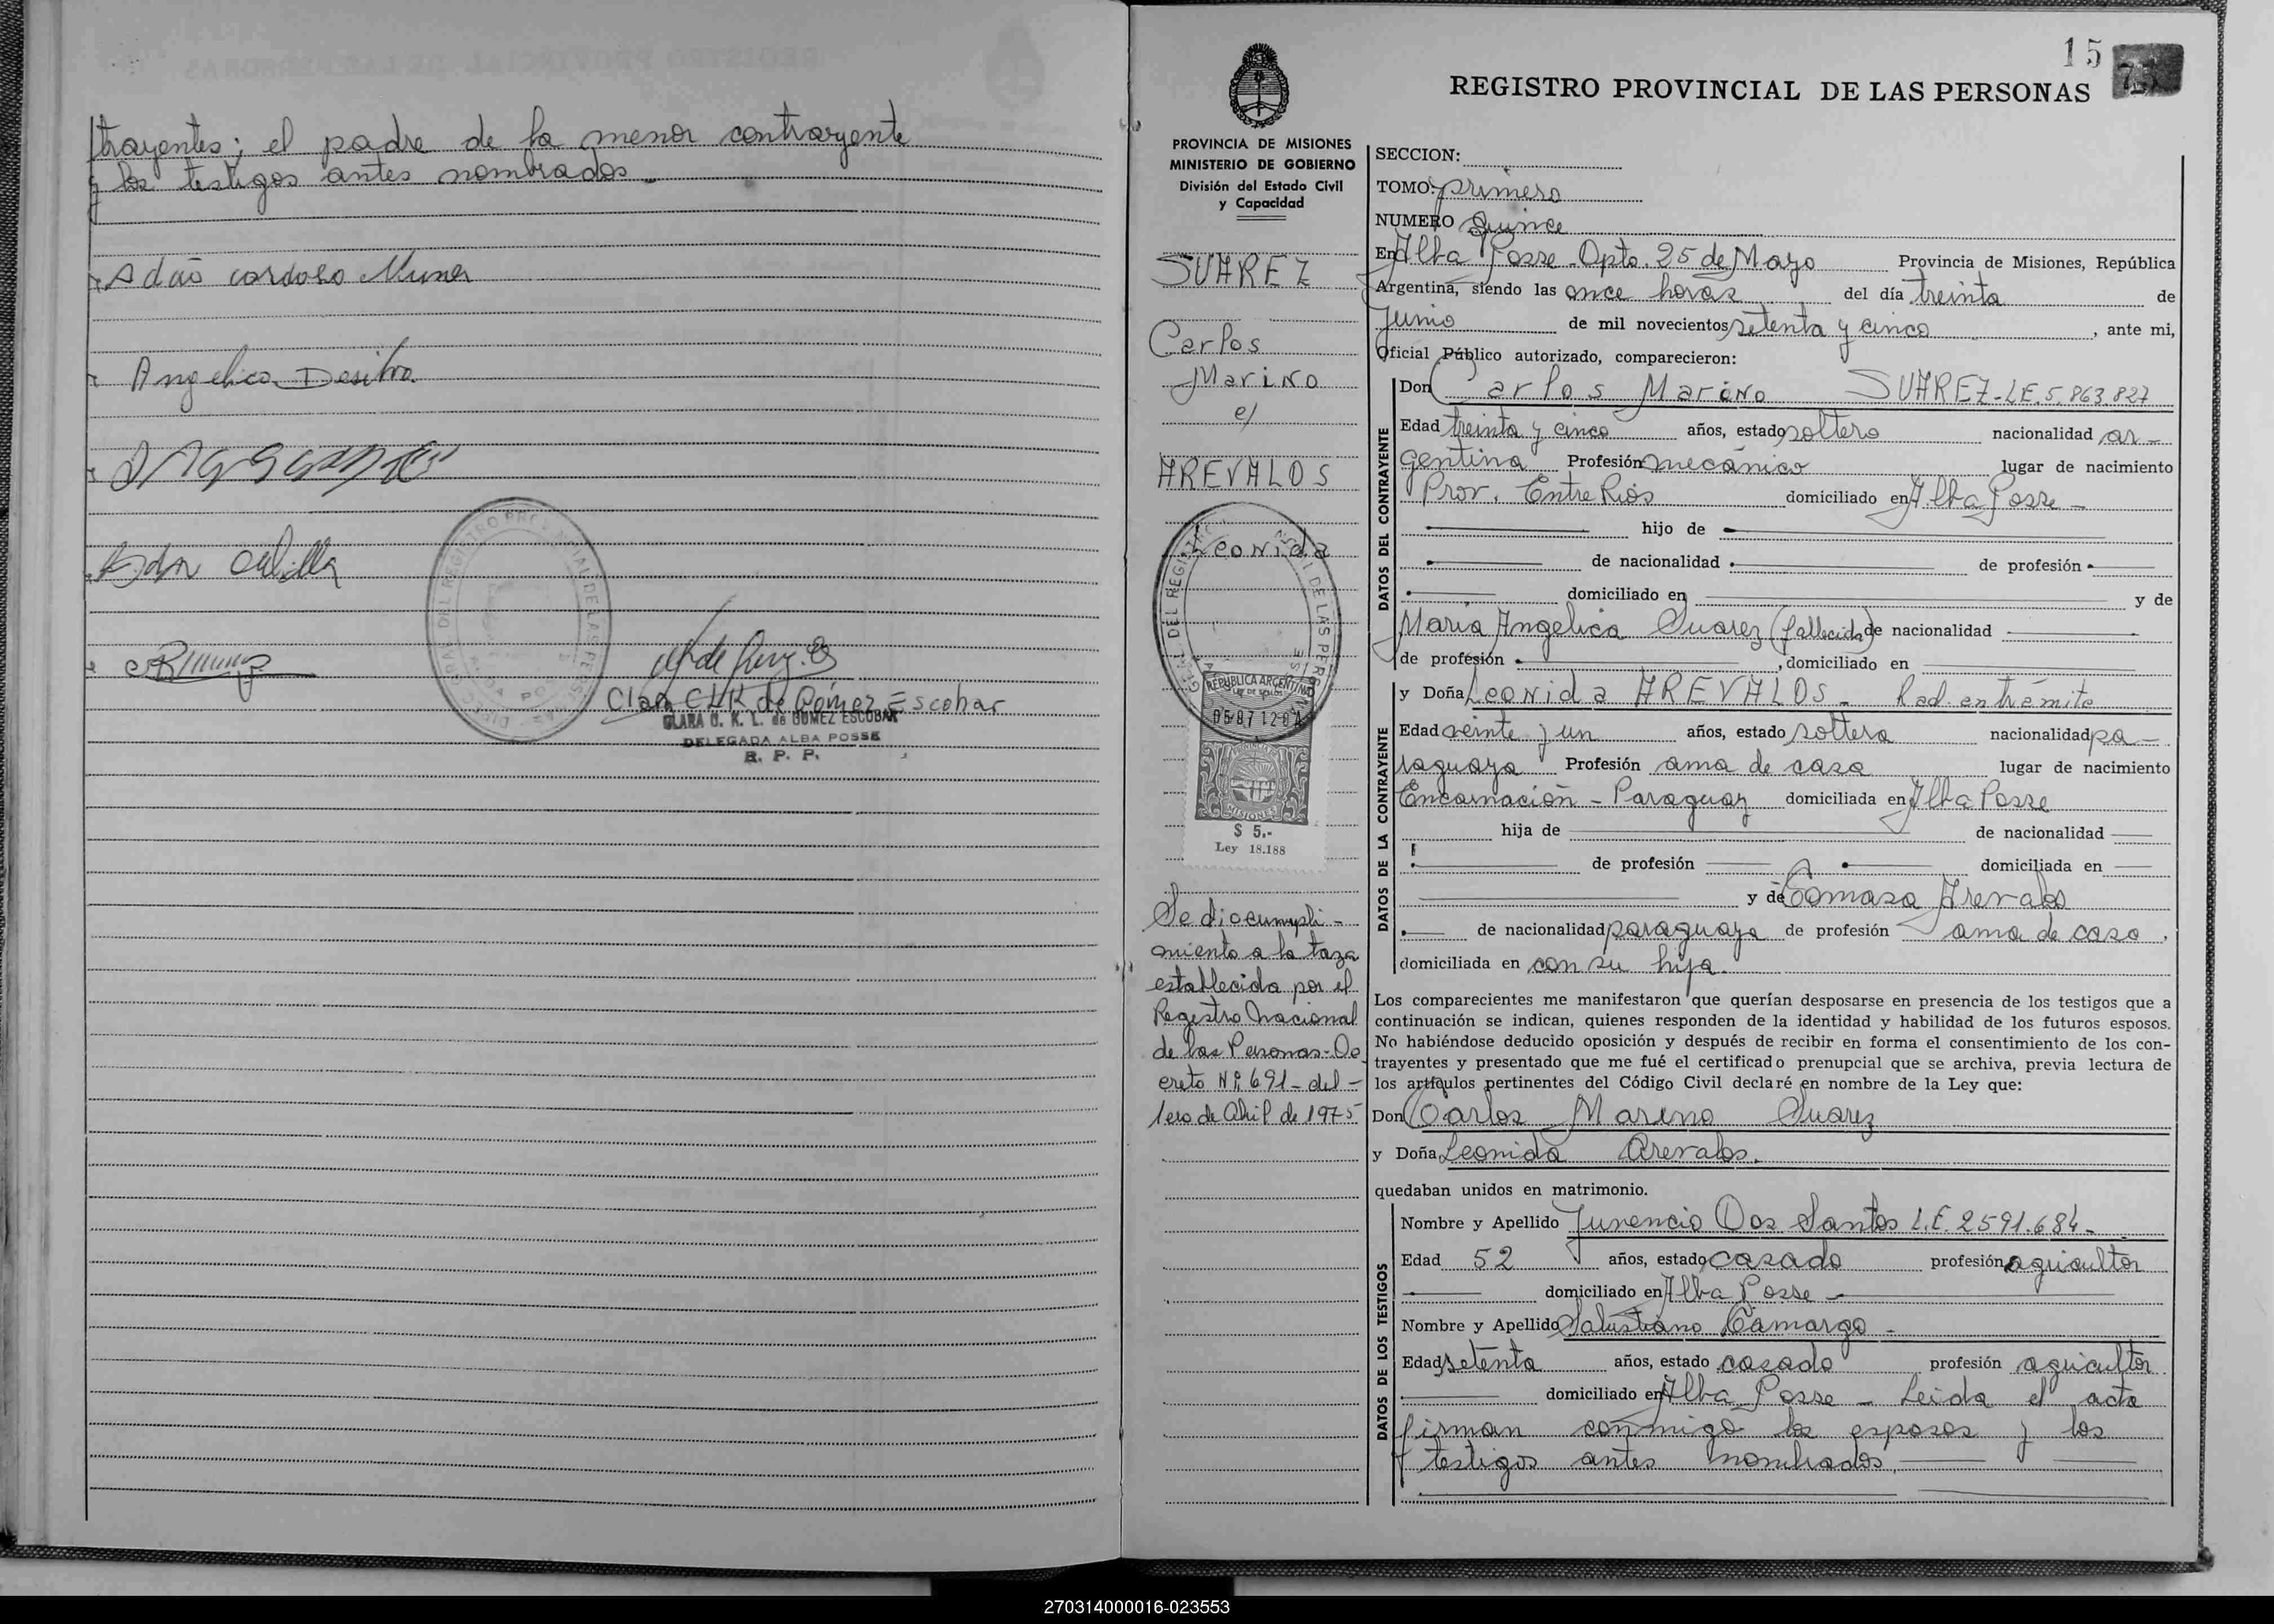 trayentes; el padre de la menor contrayente
y los testigos antes nombrados.-
Adão cardoso
Angelica Desilva
Clara CLK de Gómez Escobar
CLARA C. K. L. de GOMEZ ESCOBAR
DELEGADA ALBA POSSE
R. P. P.
15
REGISTRO PROVINCIAL DE LAS PERSONAS
PROVINCIA DE MISIONES
MINISTERIO DE GOBIERNO
División del Estado Civil
y Capacidad
SUAREZ
Carlos
Marino
c/
AREVALOS
Leonida
REPUBLICA ARGENTINA
LEY DE SELLOS
MISIONES
$ 5.-
Ley 18.188
Se dio cumpli-
miento a la taza
establecida por el
Registro Nacional
de las Personas-De
creto Nº 691- del-
1ero de Abril de 1975
SECCION:
TOMO: primero
NUMERO Quince
En Alba Posse-Dpto. 25 de Mayo Provincia de Misiones, República
Argentina, siendo las once horas del día treinta de
Junio de mil novecientos setenta y cinco, ante mi,
Oficial Público autorizado, comparecieron:
DATOS DEL CONTRAYENTE
Don Carlos Marino SUAREZ-LE.5.863.827
Edad treinta y cinco años, estado soltero nacionalidad ar-
gentina Profesión mecánico lugar de nacimiento
Prov. Entre Rios domiciliado en Alba Posse-
hijo de
de nacionalidad de profesión
domiciliado en y de
María Angelica Suarez (fallecida) de nacionalidad
de profesión , domiciliado en
DATOS DE LA CONTRAYENTE
y Doña Leonida AREVALOS- Rad. en trámite
Edad veinte y un años, estado soltera nacionalidad pa-
raguaya Profesión ama de casa lugar de nacimiento
Encarnación - Paraguay domiciliada en Alba Posse
hija de de nacionalidad
de profesión domiciliada en
y de Tomasa Arevalos
de nacionalidad paraguaya de profesión ama de casa,
domiciliada en con su hija.
Los comparecientes me manifestaron que querían desposarse en presencia de los testigos que a
continuación se indican, quienes responden de la identidad y habilidad de los futuros esposos.
No habiéndose deducido oposición y después de recibir en forma el consentimiento de los con-
trayentes y presentado que me fué el certificado prenupcial que se archiva, previa lectura de
los artículos pertinentes del Código Civil declaré en nombre de la Ley que:
Don Carlos Marino Suarez
y Doña Leonida Arevalos.
quedaban unidos en matrimonio.
DATOS DE LOS TESTIGOS
Nombre y Apellido Juvencio Dos Santos L.E. 2591.684-
Edad 52 años, estado casado profesión agricultor
domiciliado en Alba Posse-
Nombre y Apellido Salustiano Camargo-
Edad setenta años, estado casado profesión agricultor
domiciliado en Alba Posse - Leida el acta
firman conmigo los esposos y los
testigos antes nombrados.
270314000016-023553